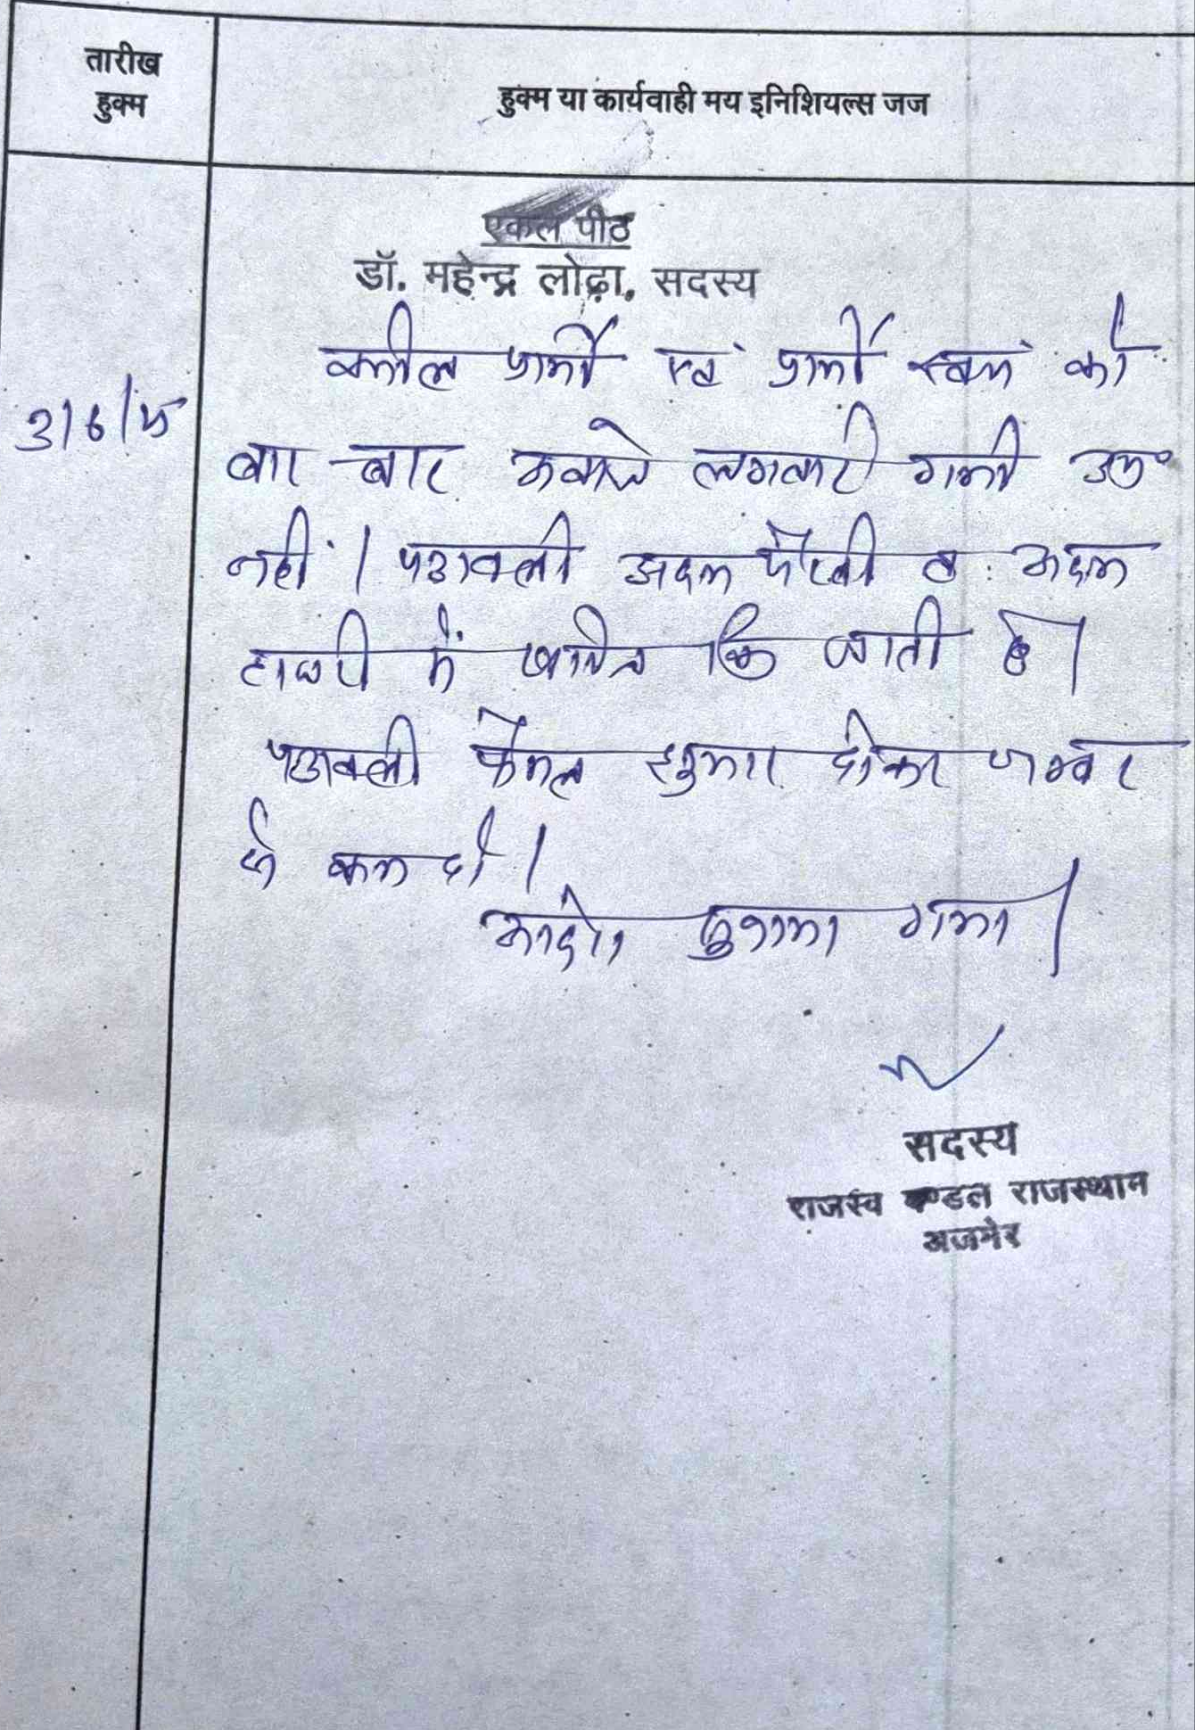 तारीख
हुक्म
हुक्म या कार्यवाही मय इनिशियल्स जज
एकल पीठ
डॉ. महेन्द्र लोढ़ा, सदस्य
वकील प्रार्थी एवं प्रार्थी स्वयं को
बार बार आवाजे लगवाई गयी उप०
नहीं। पत्रावली अदम पैरवी व अदम
हाजरी में खारिज कि जाती है।
पत्रावली फैसल शुमार होकर नम्बर
से कम हो।
आदेश सुनाया गया।
सदस्य
राजस्व मण्डल राजस्थान
अजमेर